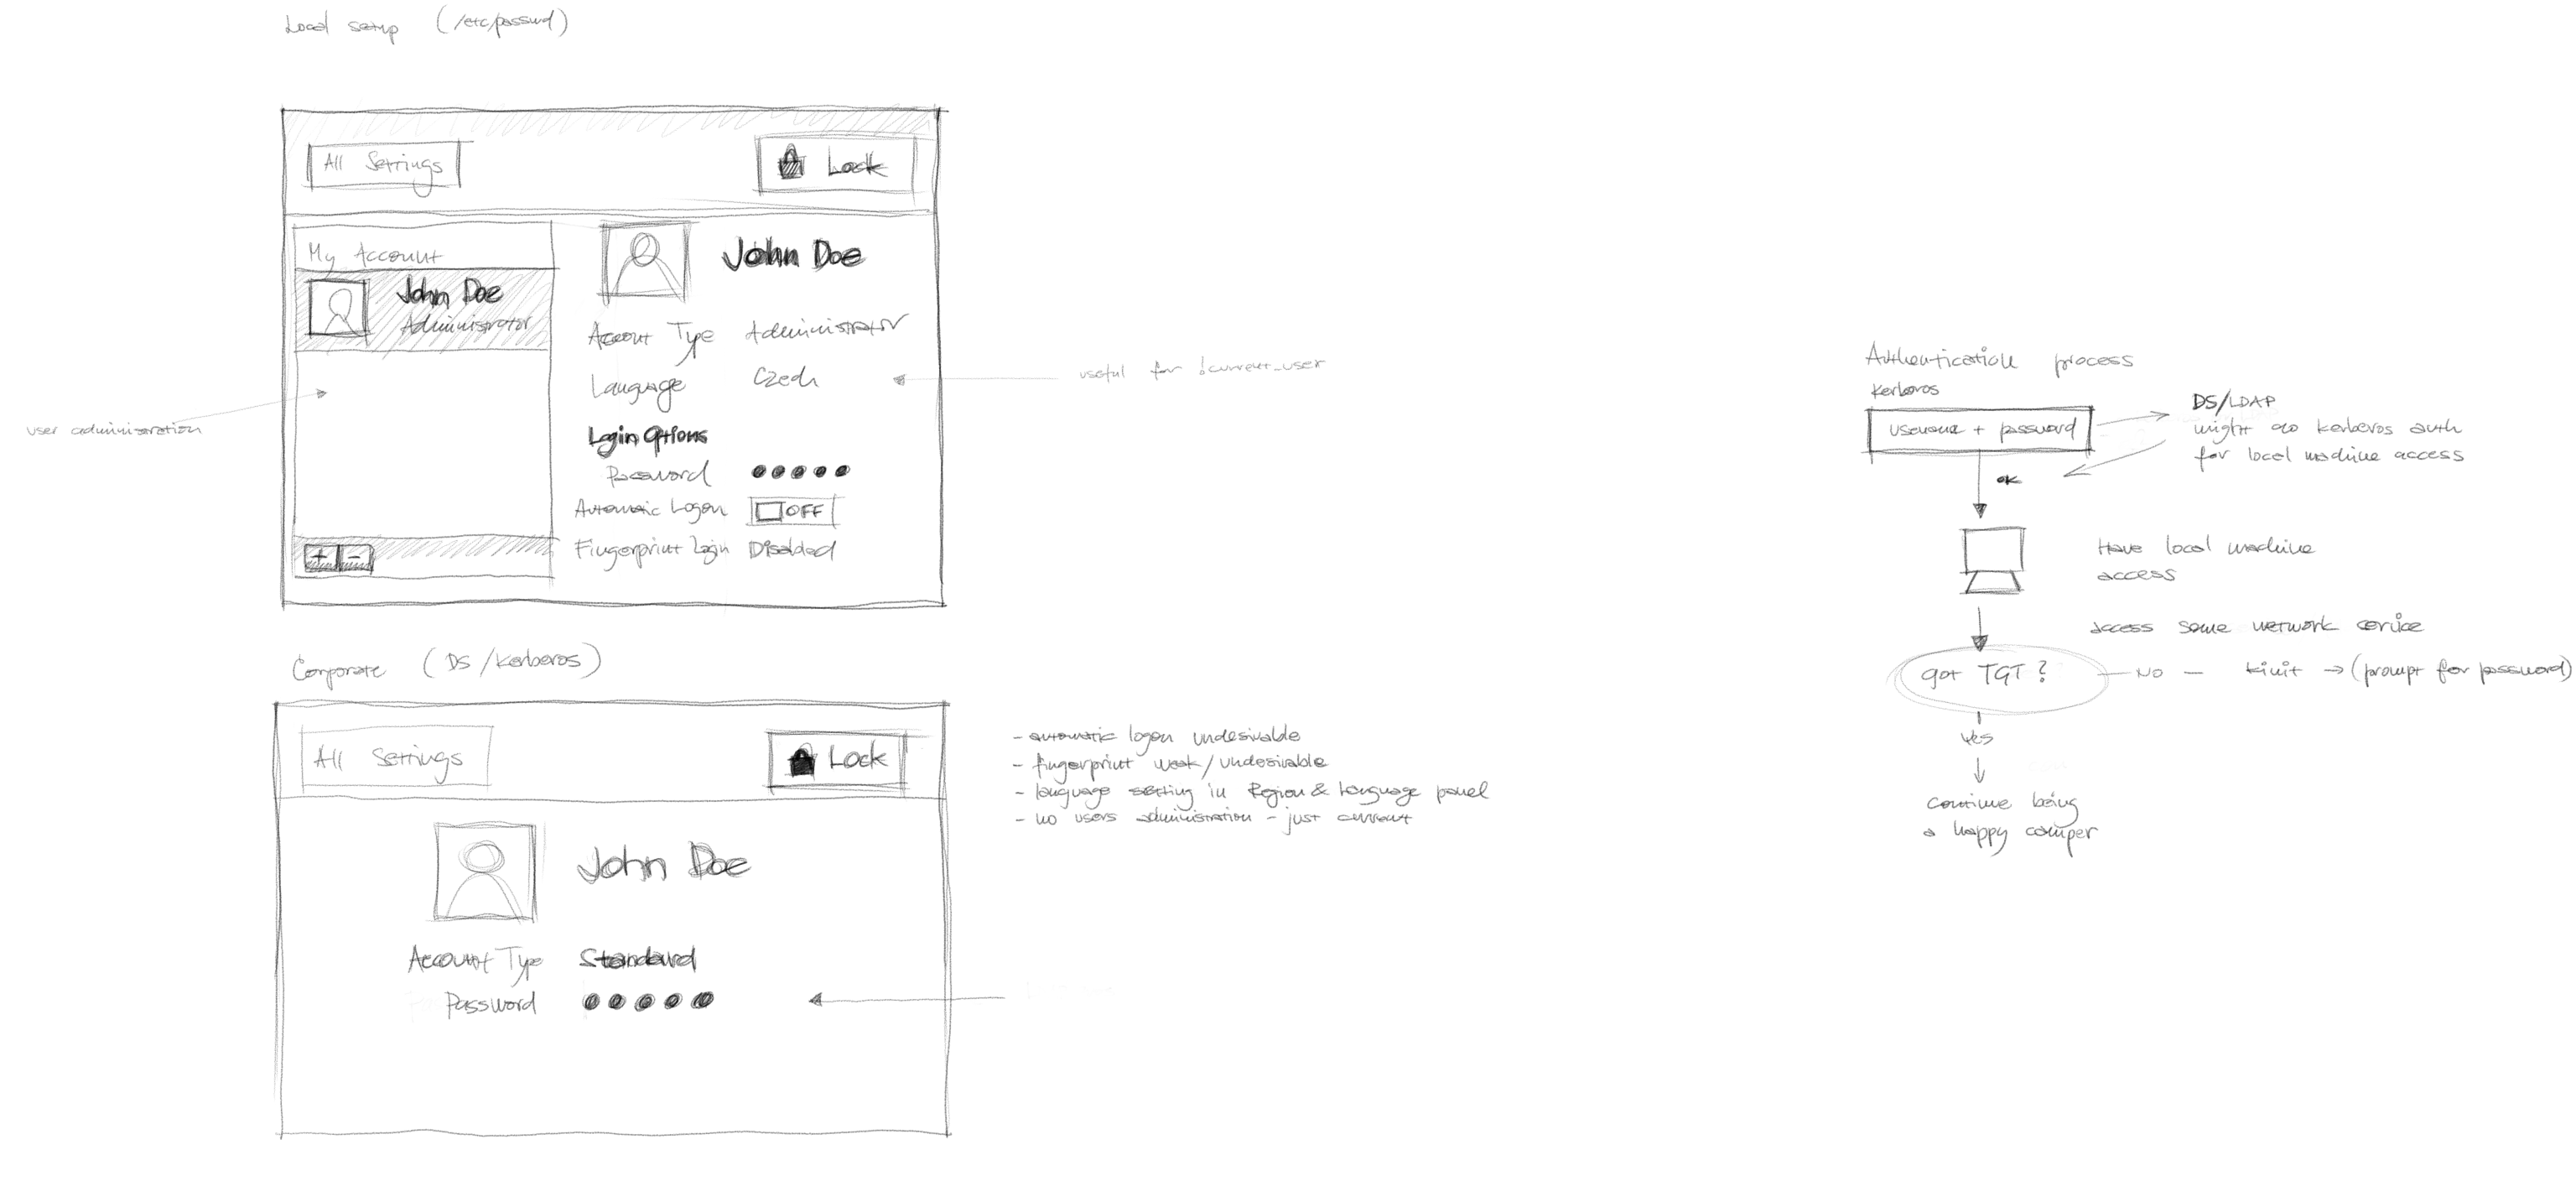 Local setup (/etc/passwd)
All Settings
Lock
My Account
John Doe
Administrator
John Doe
Account Type Administrator
Language Czech
Login Options
Password
Automatic Logon OFF
Fingerprint Login Disabled
+ -
user administration
useful for !current_user
Corporate (DS/Kerberos)
All Settings
Lock
John Doe
Account Type Standard
Password
- automatic logon undesirable
- fingerprint weak/undesirable
- language setting in Region & Language panel
- no users administration - just current
Authentication process
Kerberos
username + password
DS/LDAP
might do kerberos auth
for local machine access
OK
Have local machine
access
access some network service
got TGT?
NO - kinit → (prompt for password)
Yes
continue being
a happy camper